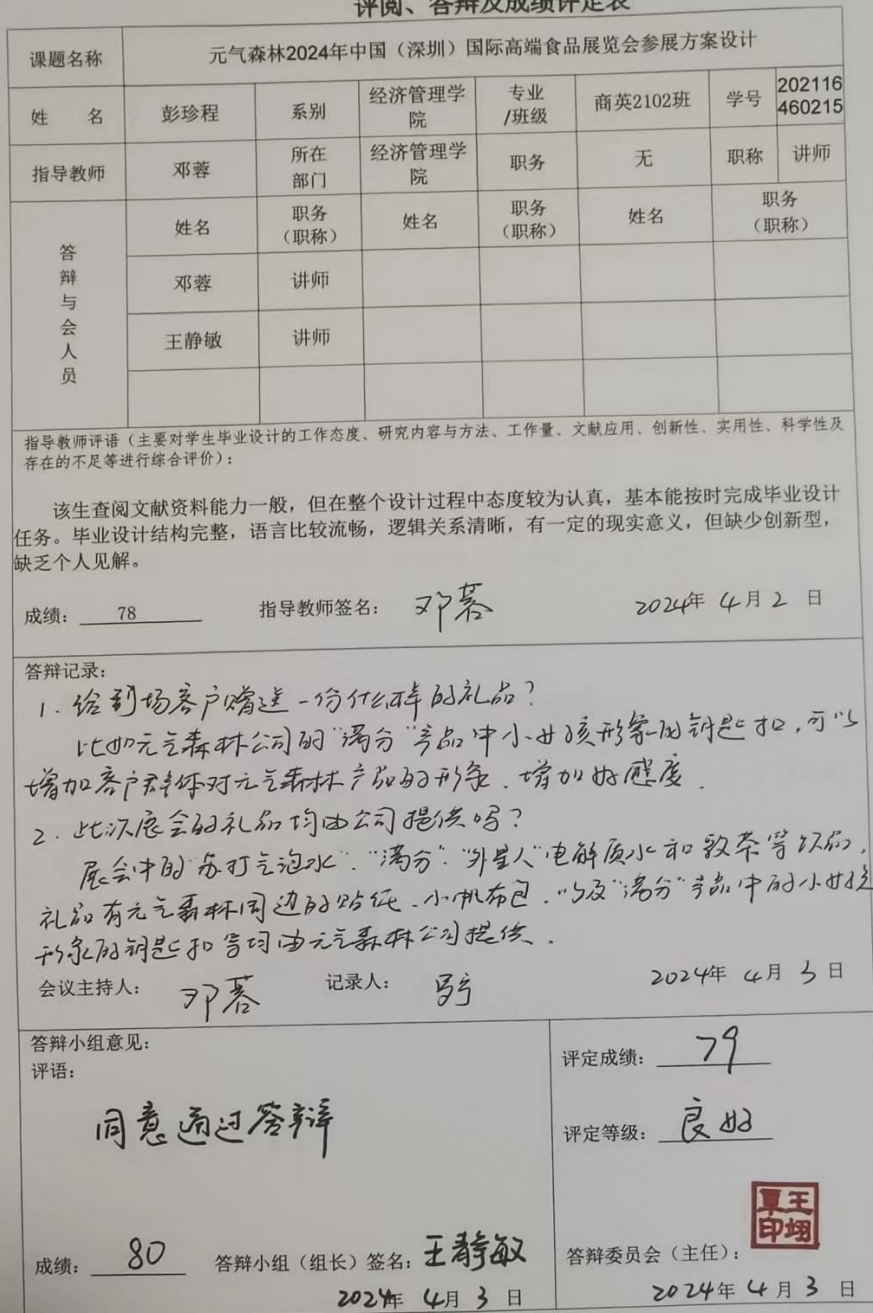 评阅、答辩及成绩评定表
课题名称 元气森林2024年中国（深圳）国际高端食品展览会参展方案设计
姓 名 彭珍程 系别 经济管理学院 专业/班级 商英2102班 学号 202116460215
指导教师 邓蓉 所在部门 经济管理学院 职务 无 职称 讲师
答辩与会人员
姓名 职务（职称） 姓名 职务（职称） 姓名 职务（职称）
邓蓉 讲师
王静敏 讲师
指导教师评语（主要对学生毕业设计的工作态度、研究内容与方法、工作量、文献应用、创新性、实用性、科学性及
存在的不足等进行综合评价）：
该生查阅文献资料能力一般，但在整个设计过程中态度较为认真，基本能按时完成毕业设计
任务。毕业设计结构完整，语言比较流畅，逻辑关系清晰，有一定的现实意义，但缺少创新型，
缺乏个人见解。
成绩： 78 指导教师签名： 邓蓉 2024年 4月 2 日
答辩记录：
1. 给到场客户赠送一份什么样的礼品？
比如元气森林公司的“满分”产品中小女孩形象的钥匙扣，可以
增加客户群体对元气森林产品的形象．增加好感度．
2. 此次展会的礼品均由公司提供吗？
展会中的“苏打气泡水”．“满分”．“外星人”电解质水和 茶等饮品，
礼品有元气森林周边的贴纸．小帆布包．以及“满分”产品中的小女孩
形象的钥匙扣等均由元气森林公司提供．
会议主持人： 邓蓉 记录人： 2024年 4月 3 日
答辩小组意见：
评语：
同意通过答辩
成绩： 80 答辩小组（组长）签名：王静敏
2024年 4月 3 日
评定成绩： 79
评定等级： 良好
答辩委员会（主任）：
覃王
印翊
2024年 4月 3 日